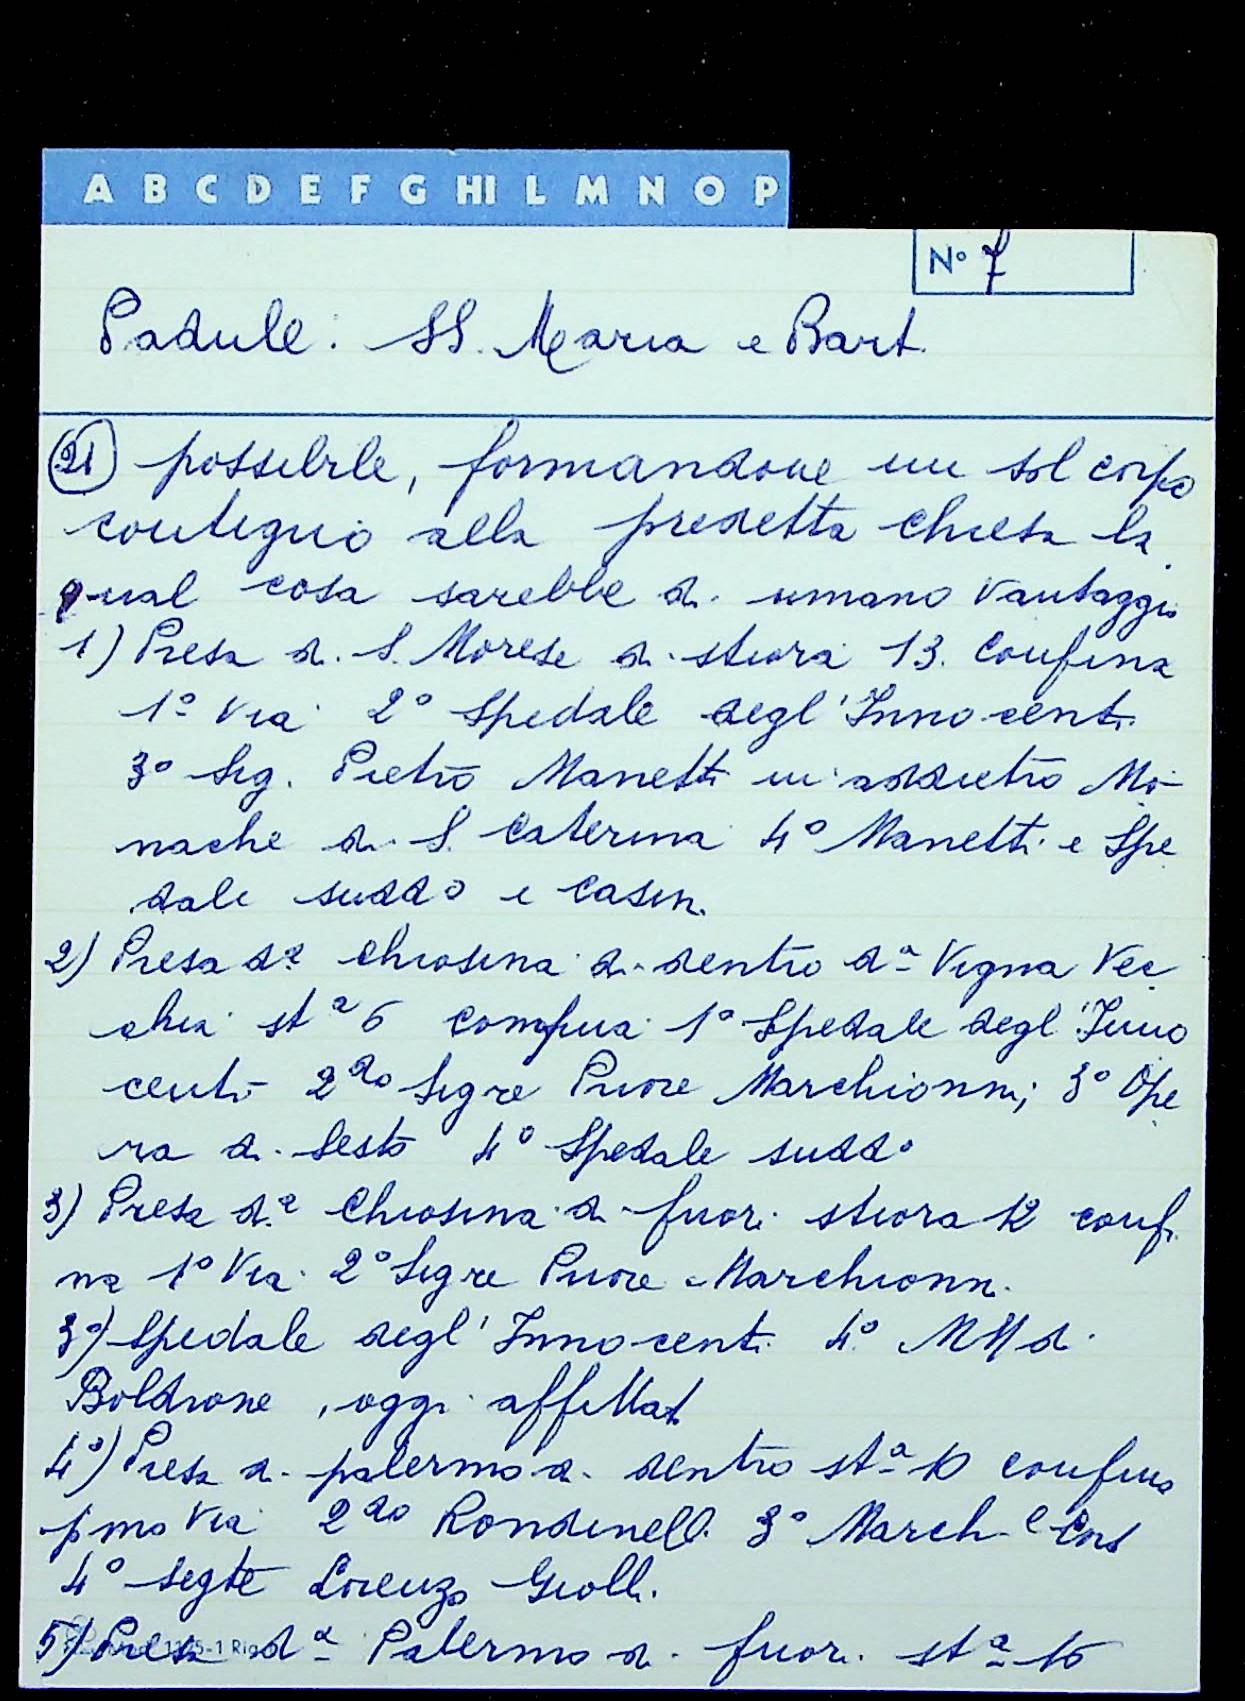 A B C D E F G HI L M N O P
N° 7
Padule: SS. Maria e Bart.
21 possibile, formandone un sol corpo
contiguo alla predetta chiesa la
qual cosa sarebbe di umano vantaggio
1) Presa di S. Morese di stiora 13. Confina
1° Via 2° Spedale degl'Innocenti
3° Sig. Pietro Manetti in addietro Mo-
nache di S. Caterina 4° Manetti e Spe
dale suddo e Casin.
2) Presa da Chiosina di dentro da Vigna Vec
chia sta 6 confina 1° Spedale degl'Inno
centi 2do Sigre Priore Marchionni; 3° Ope
ra di Sesto 4° Spedale suddo
3) Presa da Chiosina di fuori stiora 12 confi
na 1° Via 2° Sigre Priore Marchionni.
3°) Spedale degl'Innocenti 4° MM di
Boldrone, oggi affittat
4°) Presa di palermo di dentro sta 10 confina
pmo Via 2do Rondinelli 3° March
4° segte Lorenzo Grolli.
5) Presa da Palermo di fuori sta 16